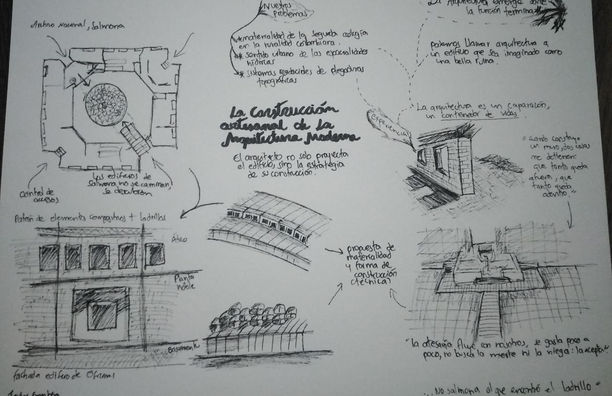 Archivo Nacional, Salmona
Nuestros
problemas
*materialidad de la segunda categoría
en la ruralidad colombiana.
* sentido urbano de las espacialidades
hídricas
* sistemas
topográficas
La arquitectura emerge
la función termina
podemos llamar arquitectura a
un edificio que sea imaginado como
una bella ruina.
La Construcción
artesanal de La
Arquitectura Moderna
El arquitecto no solo proyecta
el edificio, sino la estrategia
de su construcción.
La arquitectura es un
un contenedor de vidas
experiencias
"cuando construyo
un muro, dos cosas
me detienen:
que tanto queda
afuera, y
que tanto queda
adentro."
Los edificios de
Salmona no se caminan
se descubren
control de
accesos
Patrón de elementos compositivos + Ladrillos
Ático
Planta
noble
Basamento
fachada edificio de oficinas
propuesta de
materialidad
y forma de
construcción
(técnica)
"la artesanía fluye con nosotros, se gasta poco a
poco, no busca la mente ni la niega: la acepta"
... No salmona al que encontró el ladrillo"